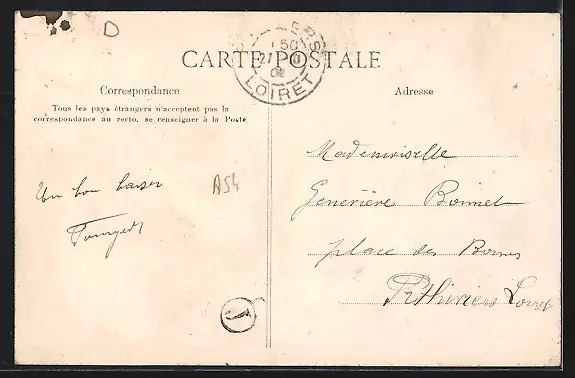 D
CARTE POSTALE
50
21
LOIRET
Correspondance
Adresse
Tous les pays étrangers n'acceptent pas la
correspondance au recto, se renseigner à la Poste
Mademoiselle
Un bon baiser
A54
Geneviève Bonnet
place des
Pithiviers Loiret
J